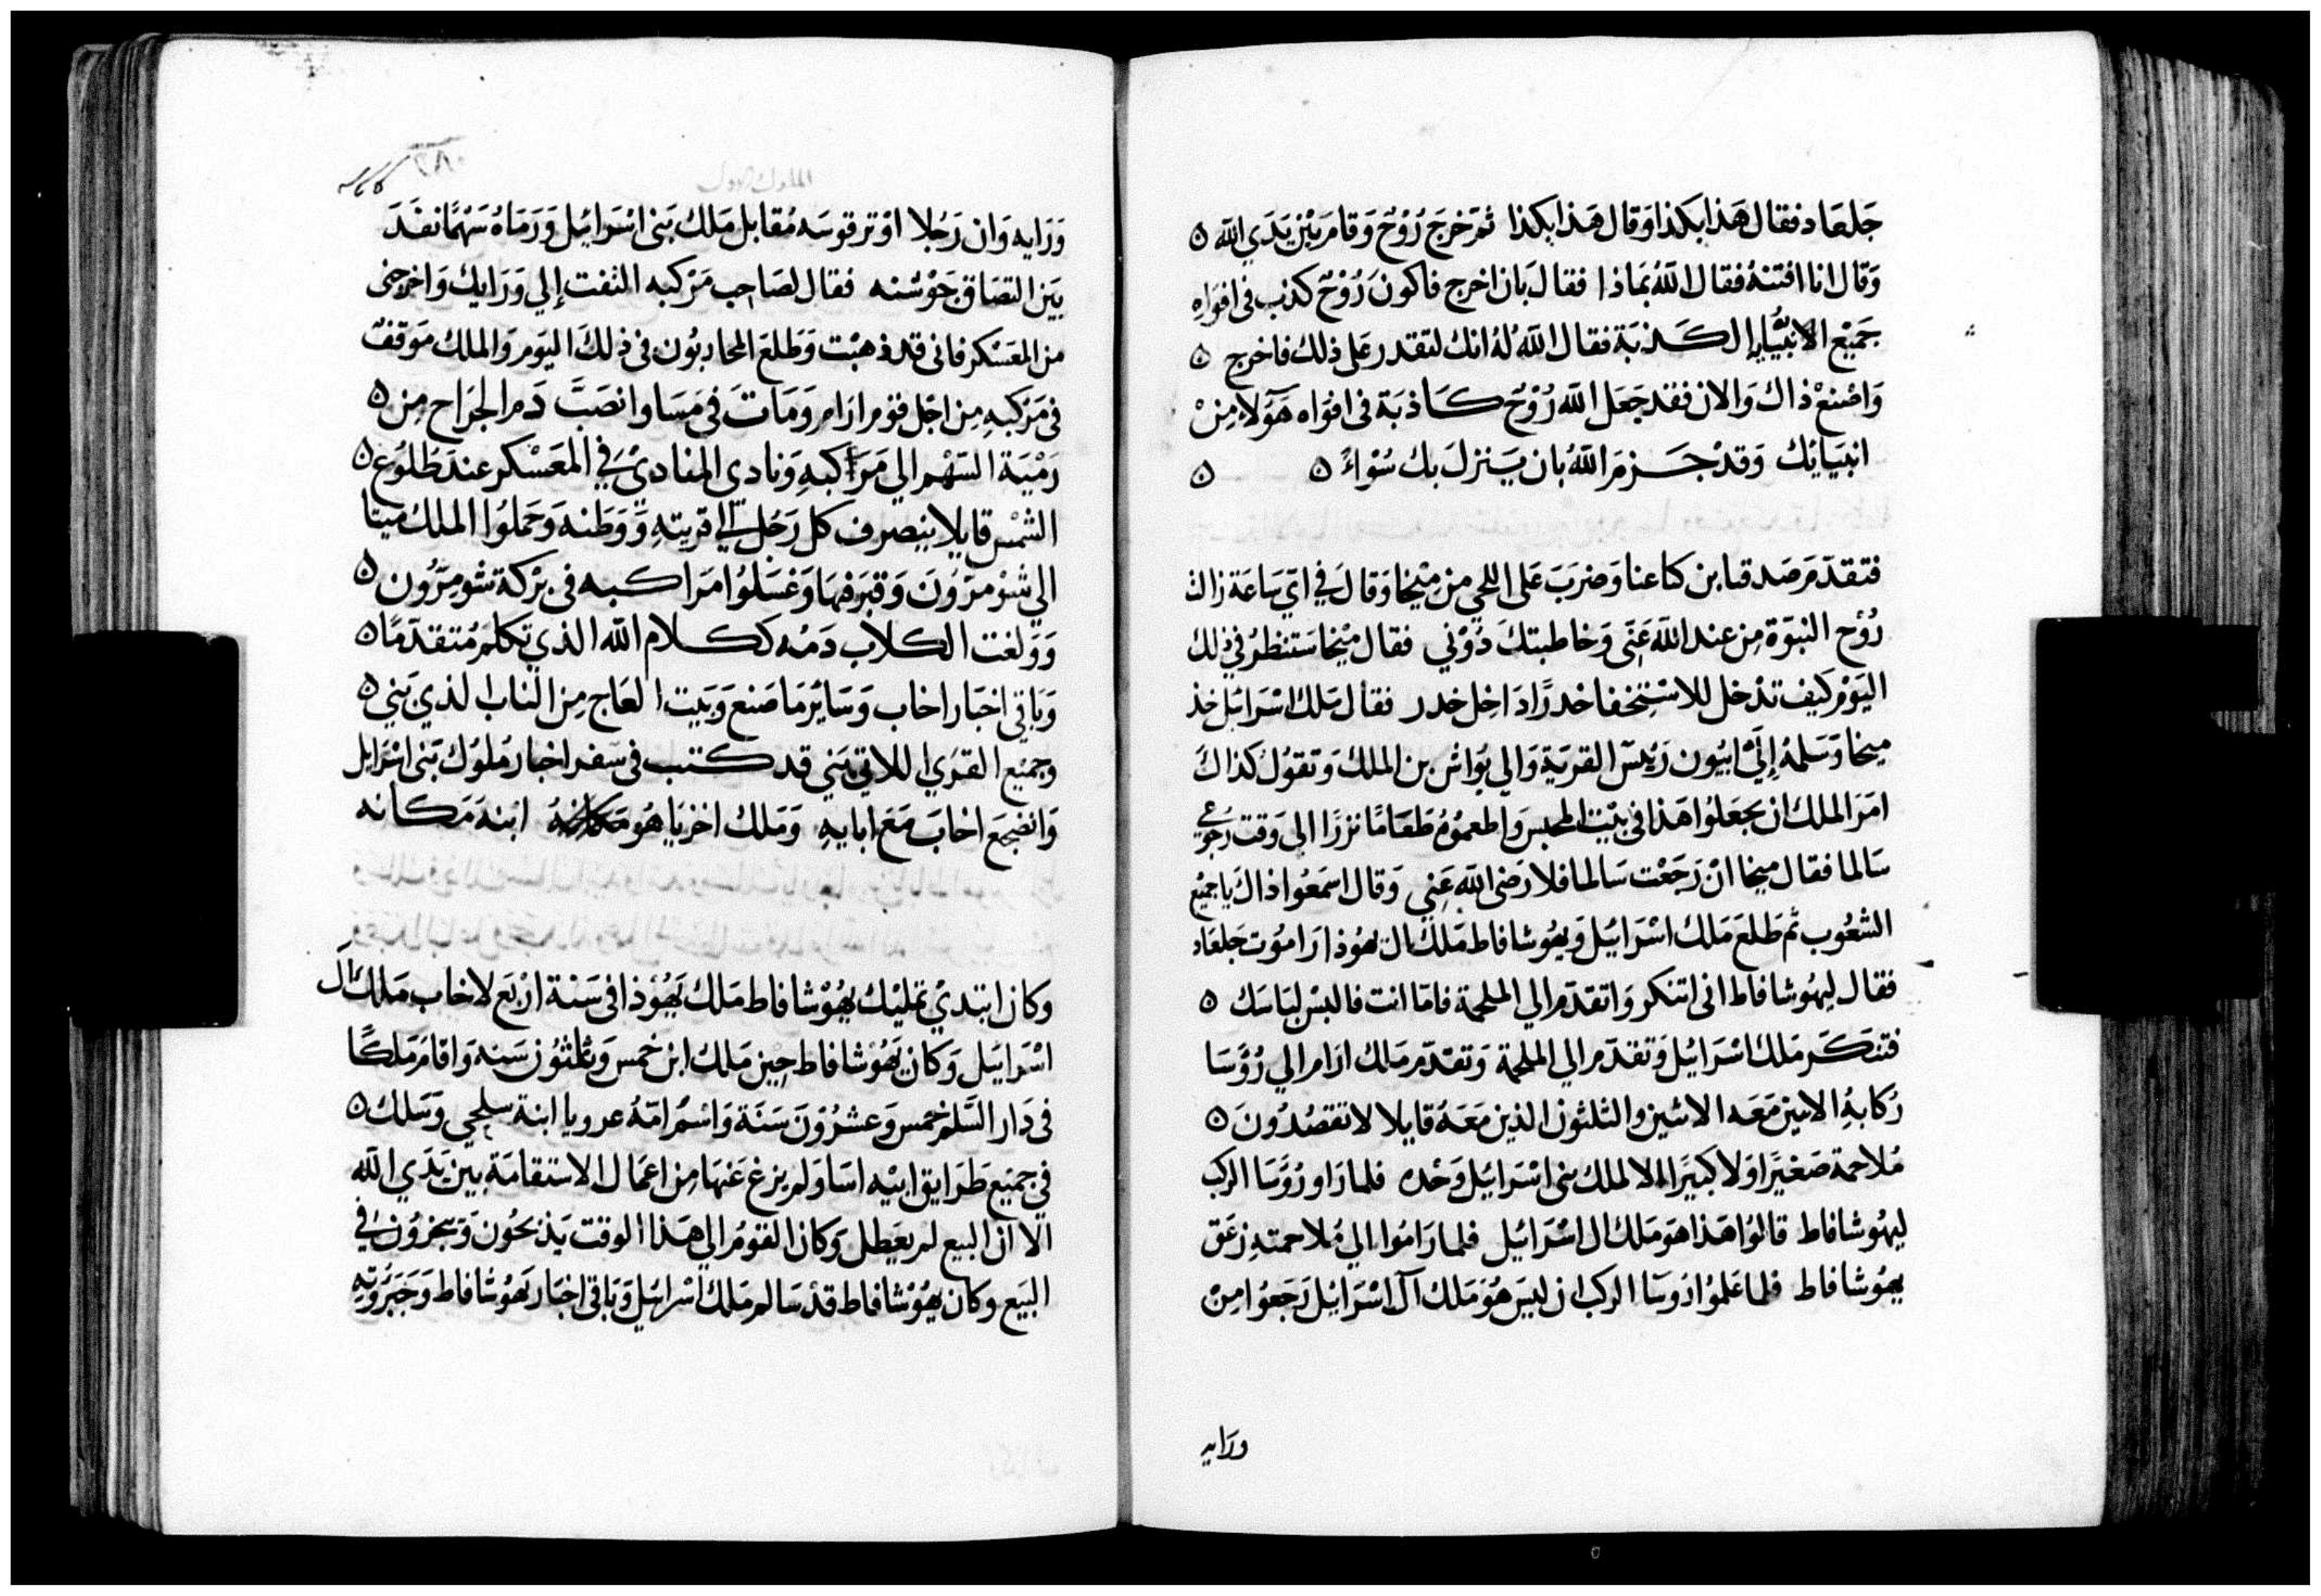 جَلعَاد فقال هَذا بكذا وَقال هَذا بكذا ثم خرَجَ رُوْحٌ وَقامَ بيْن يَدَي الله ۝
وَقال انا افتنهُ فقال اللهُ بمَاذا فقال بَان اخرج فاكونَ رُوْحٌ كذب في افوَاهِ
جَميْع الانبيَاءِ الكَذبَة فقال اللهُ لهُ انك لتقدر عَلى ذلك فاخرج ۝
وَاصْنعْ ذاك وَالان فقد جَعَل الله رُوْحٌ كَاذبَة في افوَاه هَؤلاءِ مِنْ
انبيَايُك وَقدْ جَزمَ اللهُ بان يَنزلَ بك سُوْاءً ۝ ۝
فتقدّمَ صَدقيا بن كناعنا وَضربَ عَلى اللحي من مِيْخا وَقالَ في ايّ سَاعَة زالت
رُوْح النبوَة مِن عند الله عَنّى وَخاطبتكَ دُوْني فقال مِيْخا سَتنظرُ في ذلك
اليَوْم كيف تدْخل للاسْتخفا خدرًا دَاخِل خدر فقال مَلك اسْرَائيَل خذ
ميخا وَسَلمهُ إلَى ابيُون رَئيسَ القريَة وَالي يُوَاش بن الملك وَتقوُل كذاكَ
امَرَ الملك ان يجعَلوُا هَذا في بيْت المحبس وَاطعموُهُ طعَامًا نزرًا الي وَقت رجوُعي
سَالما فقال ميخا انْ رَجَعْت سَالما فلا رَضى الله عَني وَقال اسمَعُوا ذاكَ يَا جميْع
الشعُوب ثم طلعَ مَلك اسْرَائيَل وَيهُوشافاط مَلك ال يهوُذا رَامُوت جَلعَاد
فقال ليهوُشافاط انى اتنكر وَاتقدّم الي الملحمة فامّا انت فالبسْ لبَاسَك ۝
فتنكَر مَلك اسْرَائيُل وَتقدّم الي الملحمة وَتقدّم مَلك ارَام الي رُؤَسَا
رُكابهُ الاتنين مَعَه الاثنين والثلثون الذين مَعَهُ قايلا لا تقصُدُونَ ۝
مُلاحمة صَغيْرًا وَلا كبيْرًا الا لملك بنى اسْرَائيُل وَحْده فلما رَاو رُؤسَا الركب
ليهوُشافاط قالوُا هَذا هوَ مَلك ال اسْرَائيُل فلما رَامُوا الي مُلاحمتهِ زعَق
يهوُشافاط فلما عَلموُا رَوسَا الركب ان ليسَ هُوَ مَلك آل اسْرَائيُل رَجَعُوا مِنْ
ورَايه
وَرَايه وَان رَجُلا اوْتر قوسَه مُقابل مَلك بَنى اسْرَائيُل وَرَمَاهُ سَهْمًا نفَدَ
بَيَن التصَاق جَوْشنه فقال لصَاحِب مَرْكبه التفت إلي وَرَايك وَاخرجني
من المعَسْكر فاني قد ذهبْت وَطلعَ المحاربُون في ذلك اليَوم وَالملك مَوَقفٌ
في مَرْكبهِ مِن اجْل قوم ارَام وَمَاتَ في مَسَا وانصَبَّ دَم الجرَاح مِن ۝
رَمْيَة السّهْم الي مَرَاكبهِ وَنادي المنَاديْ في المعَسْكر عندَ طلوُع ۝
الشمْس قايلا ينصرف كل رَجُل الي قريتهِ وَوَطنه وَحَملوُا الملك مَيتًا
الي شوْمرَوْنَ وَقبَر فيهَا وَغسَلوُا مرَاكبه في برْكة شومرُون ۝
وَوَلغت الكلاب دَمُه ككلام الله الذي تكلم مُتقدّمًا ۝
وَبَاقى اخبَار اخاب وَسَايُر مَا صَنع وَبيَت العَاج مِن النَاب الذي بَني ۝
وجميْع القرُي اللاتي بَني قد كتب في سفر اخبار مُلوُك بَنى اسْرَايل
وَانضجعَ اخابَ مَعَ ابايهِ وَمَلك اخزيَاهُو ابْنهُ مَكَانه
وكان ابتديْ تمَليْك يهُوْشافاط مَلك يَهُوْذا في سَنة ارْبَع لاخاب مَلك آل
اسْرَايَل وَكان يَهُوْشافاط حِيْن مَلك ابن خمْس وَثلثُون سَنه وَاقامَ مَلكًا
في دَار السَّلم خمْس وَعشرُوْنَ سَنَة وَاسْمُ امّهُ عروبا ابنة سلحي وَسَلك ۝
في جَميْع طرَايق ابيْه اسَا وَلم يزغ عَنهَا مِن اعمَال الاستقامَة بين يَدَي الله
الّا انّ البيع لم يعَطل وَكان القوْمُ الي هَذا الوقت يَذبَحُون وَيبخرُوْن في
البَيَع وكان يهُوْشافاط قدْ سَالم مَلك اسْرَائيل وَبَاقى اخبَار يَهُوْشافاط وَجَبَرُوْتهِ